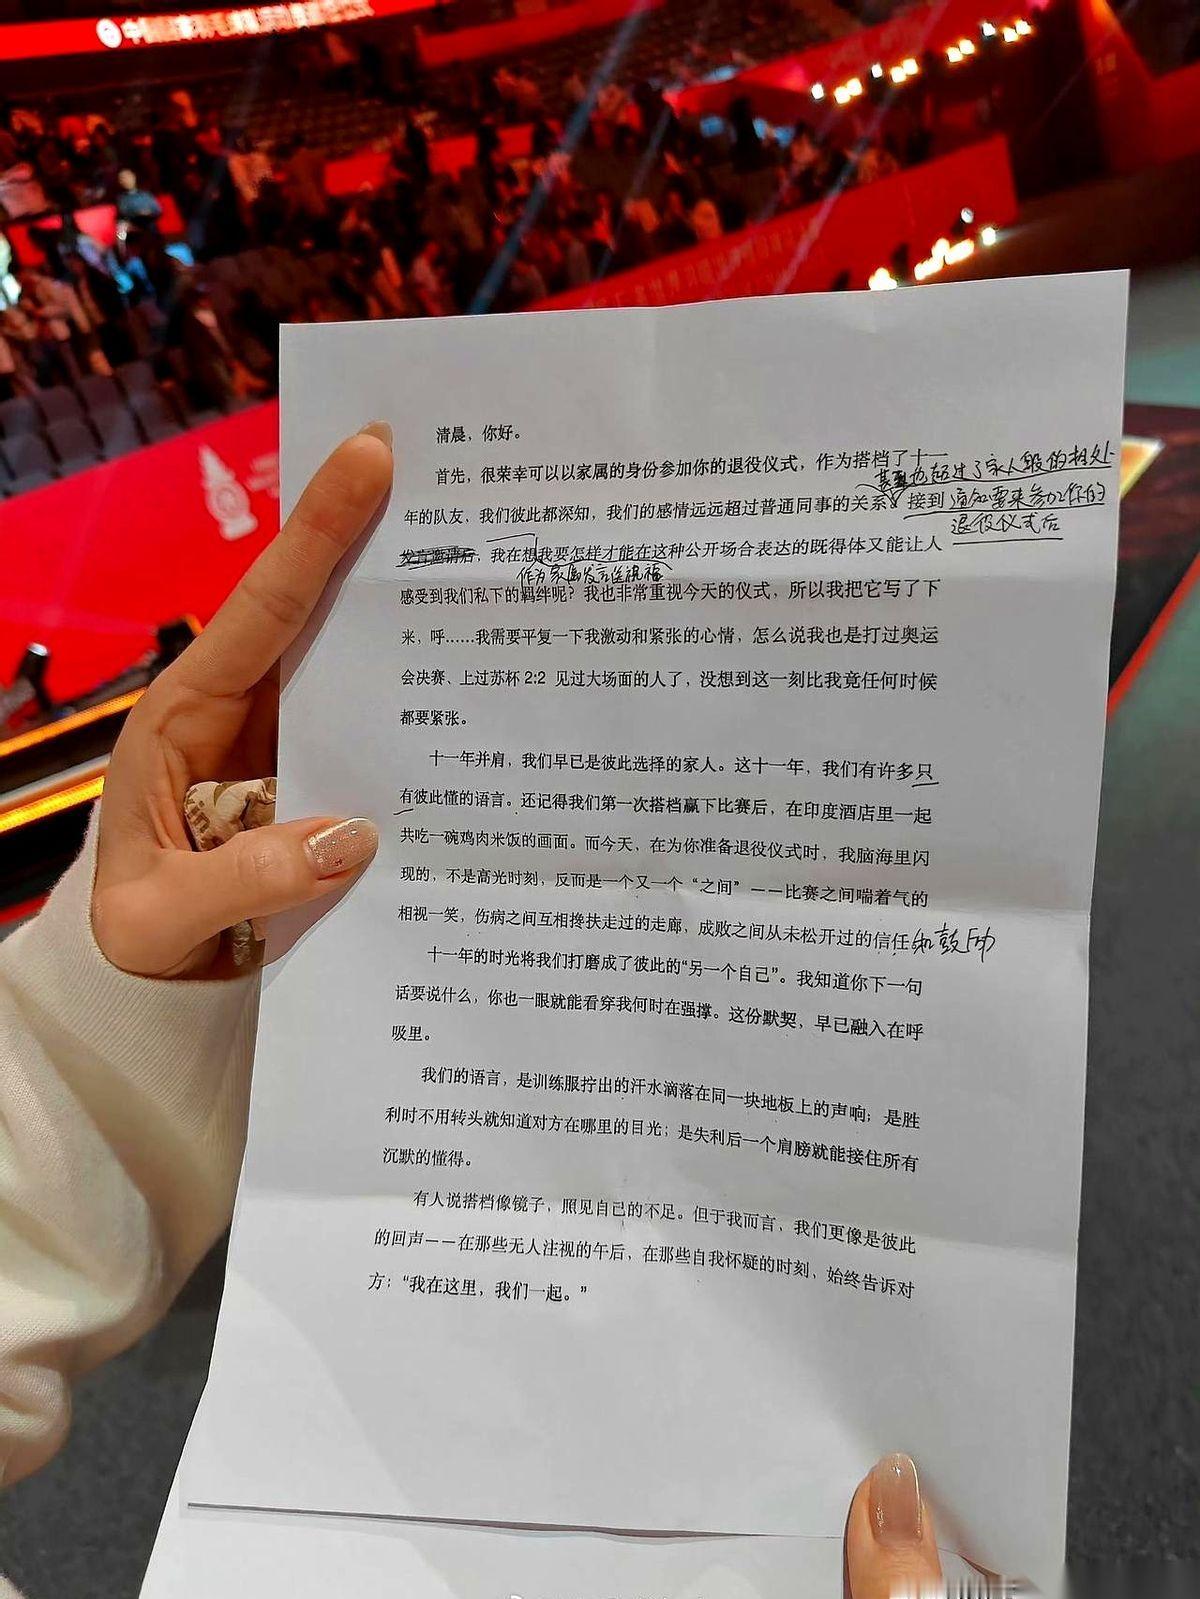 清晨，你好。
首先，很荣幸可以以家属的身份参加你的退役仪式，作为搭档了十一
甚至也超过了家人般的相处
年的队友，我们彼此都深知，我们的感情远远超过普通同事的关系，接到通知要来参加你的
退役仪式后
发言邀请后，我在想我要怎样才能在这种公开场合表达的既得体又能让人
作为家属发言送祝福
感受到我们私下的羁绊呢？我也非常重视今天的仪式，所以我把它写了下
来，呼……我需要平复一下我激动和紧张的心情，怎么说我也是打过奥运
会决赛、上过苏杯 2:2 见过大场面的人了，没想到这一刻比我竟任何时候
都要紧张。
十一年并肩，我们早已是彼此选择的家人。这十一年，我们有许多只
有彼此懂的语言。还记得我们第一次搭档赢下比赛后，在印度酒店里一起
共吃一碗鸡肉米饭的画面。而今天，在为你准备退役仪式时，我脑海里闪
现的，不是高光时刻，反而是一个又一个“之间”——比赛之间喘着气的
相视一笑，伤病之间互相搀扶走过的走廊，成败之间从未松开过的信任和鼓励
十一年的时光将我们打磨成了彼此的“另一个自己”。我知道你下一句
话要说什么，你也一眼就能看穿我何时在强撑。这份默契，早已融入在呼
吸里。
我们的语言，是训练服拧出的汗水滴落在同一块地板上的声响；是胜
利时不用转头就知道对方在哪里的目光；是失利后一个肩膀就能接住所有
沉默的懂得。
有人说搭档像镜子，照见自己的不足。但于我而言，我们更像是彼此
的回声——在那些无人注视的午后，在那些自我怀疑的时刻，始终告诉对
方：“我在这里，我们一起。”